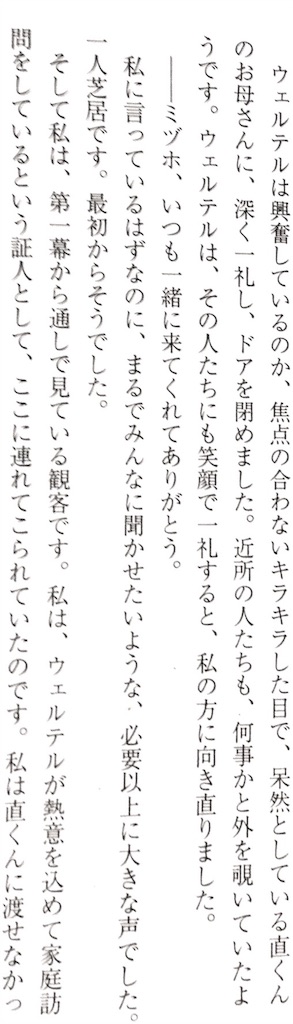 ウェルテルは興奮しているのか、焦点の合わないキラキラした目で、呆然としている直くん
のお母さんに、深く一礼し、ドアを閉めました。近所の人たちも、何事かと外を覗いていたよ
うです。ウェルテルは、その人たちにも笑顔で一礼すると、私の方に向き直りました。
　――ミヅホ、いつも一緒に来てくれてありがとう。
　私に言っているはずなのに、まるでみんなに聞かせたいような、必要以上に大きな声でした。
一人芝居です。最初からそうでした。
　そして私は、第一幕から通しで見ている観客です。私は、ウェルテルが熱意を込めて家庭訪
問をしているという証人として、ここに連れてこられていたのです。私は直くんに渡せなかっ